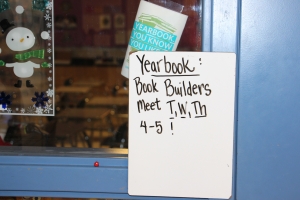 YEARBOOK
YOU KNOW
YOU
Yearbook :
Book Builders
Meet T, W, Th
4-5 !